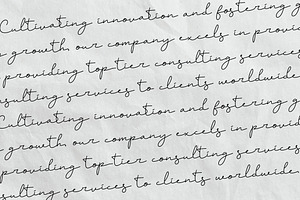 Cultivating innovation and fostering g
growth, our company excels in provid
providing top-tier consulting services
nsulting services to clients worldwide.
Cultivating innovation and fostering g
growth, our company excels in provid
providing top-tier consulting services
nsulting services to clients worldwide.